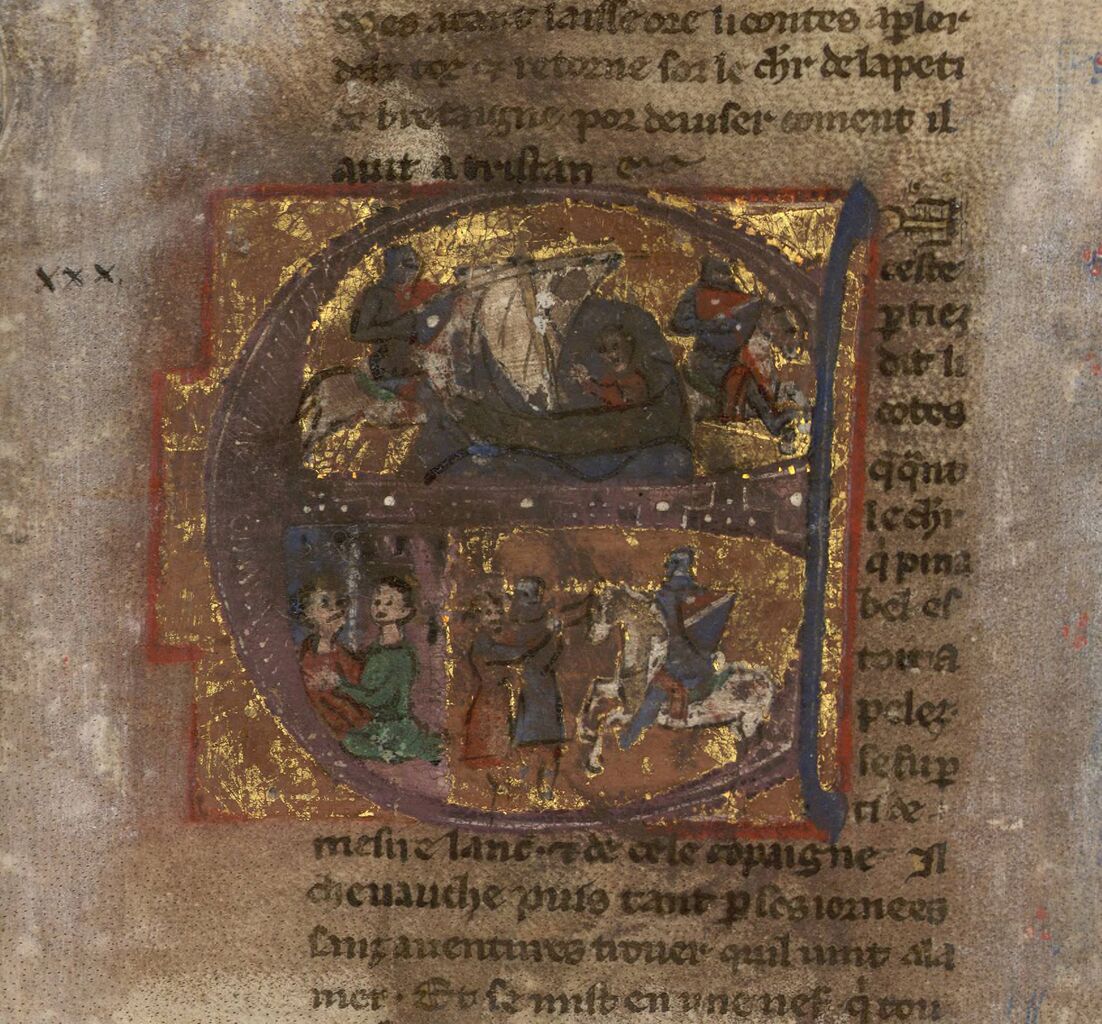 Mes atant laisse ore li contes apler
dele cor & retorne sor le chr de la peti
te bretaigne por deviser coment il
avit a tristan
xxx.
ceste
ptiez
dit li
cotes
q qnt
le chr
q pina
bel es
toit a
peler
se fu p
ti de
mesire lanc. & de cele copaigne Il
chevauche puis tant p ses iornees
sanz aventures trover quil vint ala
mer. Et se mist en une nef. q tou